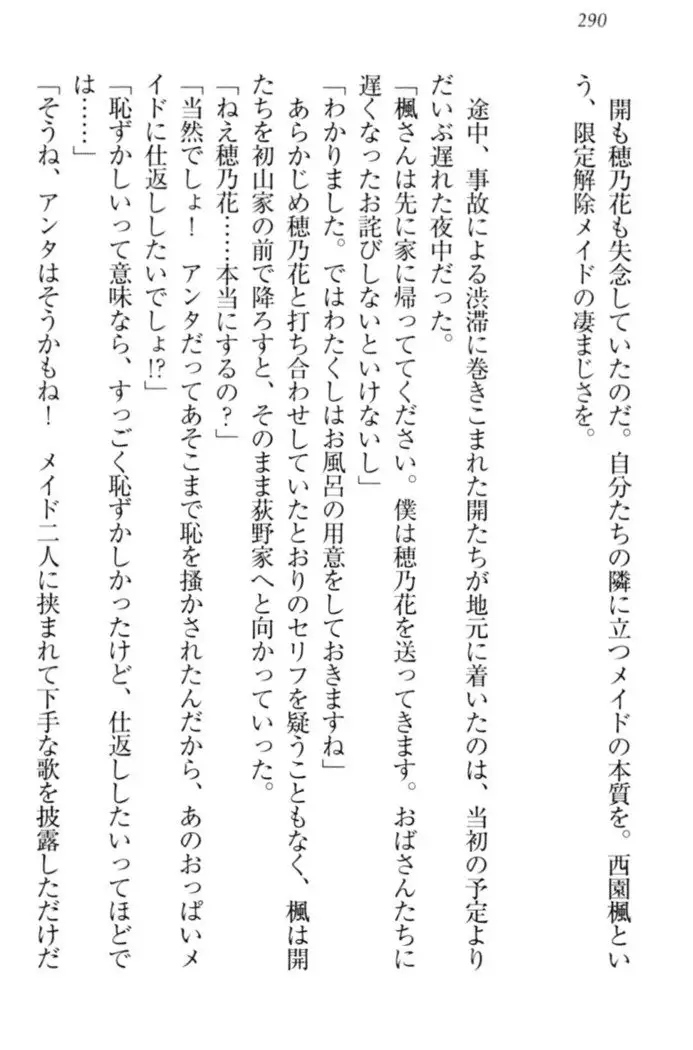 290
開も穂乃花も失念していたのだ。自分たちの隣に立つメイドの本質を。西園楓とい
う、限定解除メイドの凄まじさを。
途中、事故による渋滞に巻きこまれた開たちが地元に着いたのは、当初の予定より
だいぶ遅れた夜中だった。
「楓さんは先に家に帰っててください。僕は穂乃花を送ってきます。おばさんたちに
遅くなったお詫びしないといけないし」
「わかりました。ではわたくしはお風呂の用意をしておきますね」
あらかじめ穂乃花と打ち合わせしていたとおりのセリフを疑うこともなく、楓は開
たちを初山家の前で降ろすと、そのまま荻野家へと向かっていった。
「ねえ穂乃花……本当にするの？」
「当然でしょ！　アンタだってあそこまで恥を掻かされたんだから、あのおっぱいメ
イドに仕返ししたいでしょ!?」
「恥ずかしいって意味なら、すっごく恥ずかしかったけど、仕返ししたいってほどで
は……」
「そうね、アンタはそうかもね！　メイド二人に挟まれて下手な歌を披露しただけだ